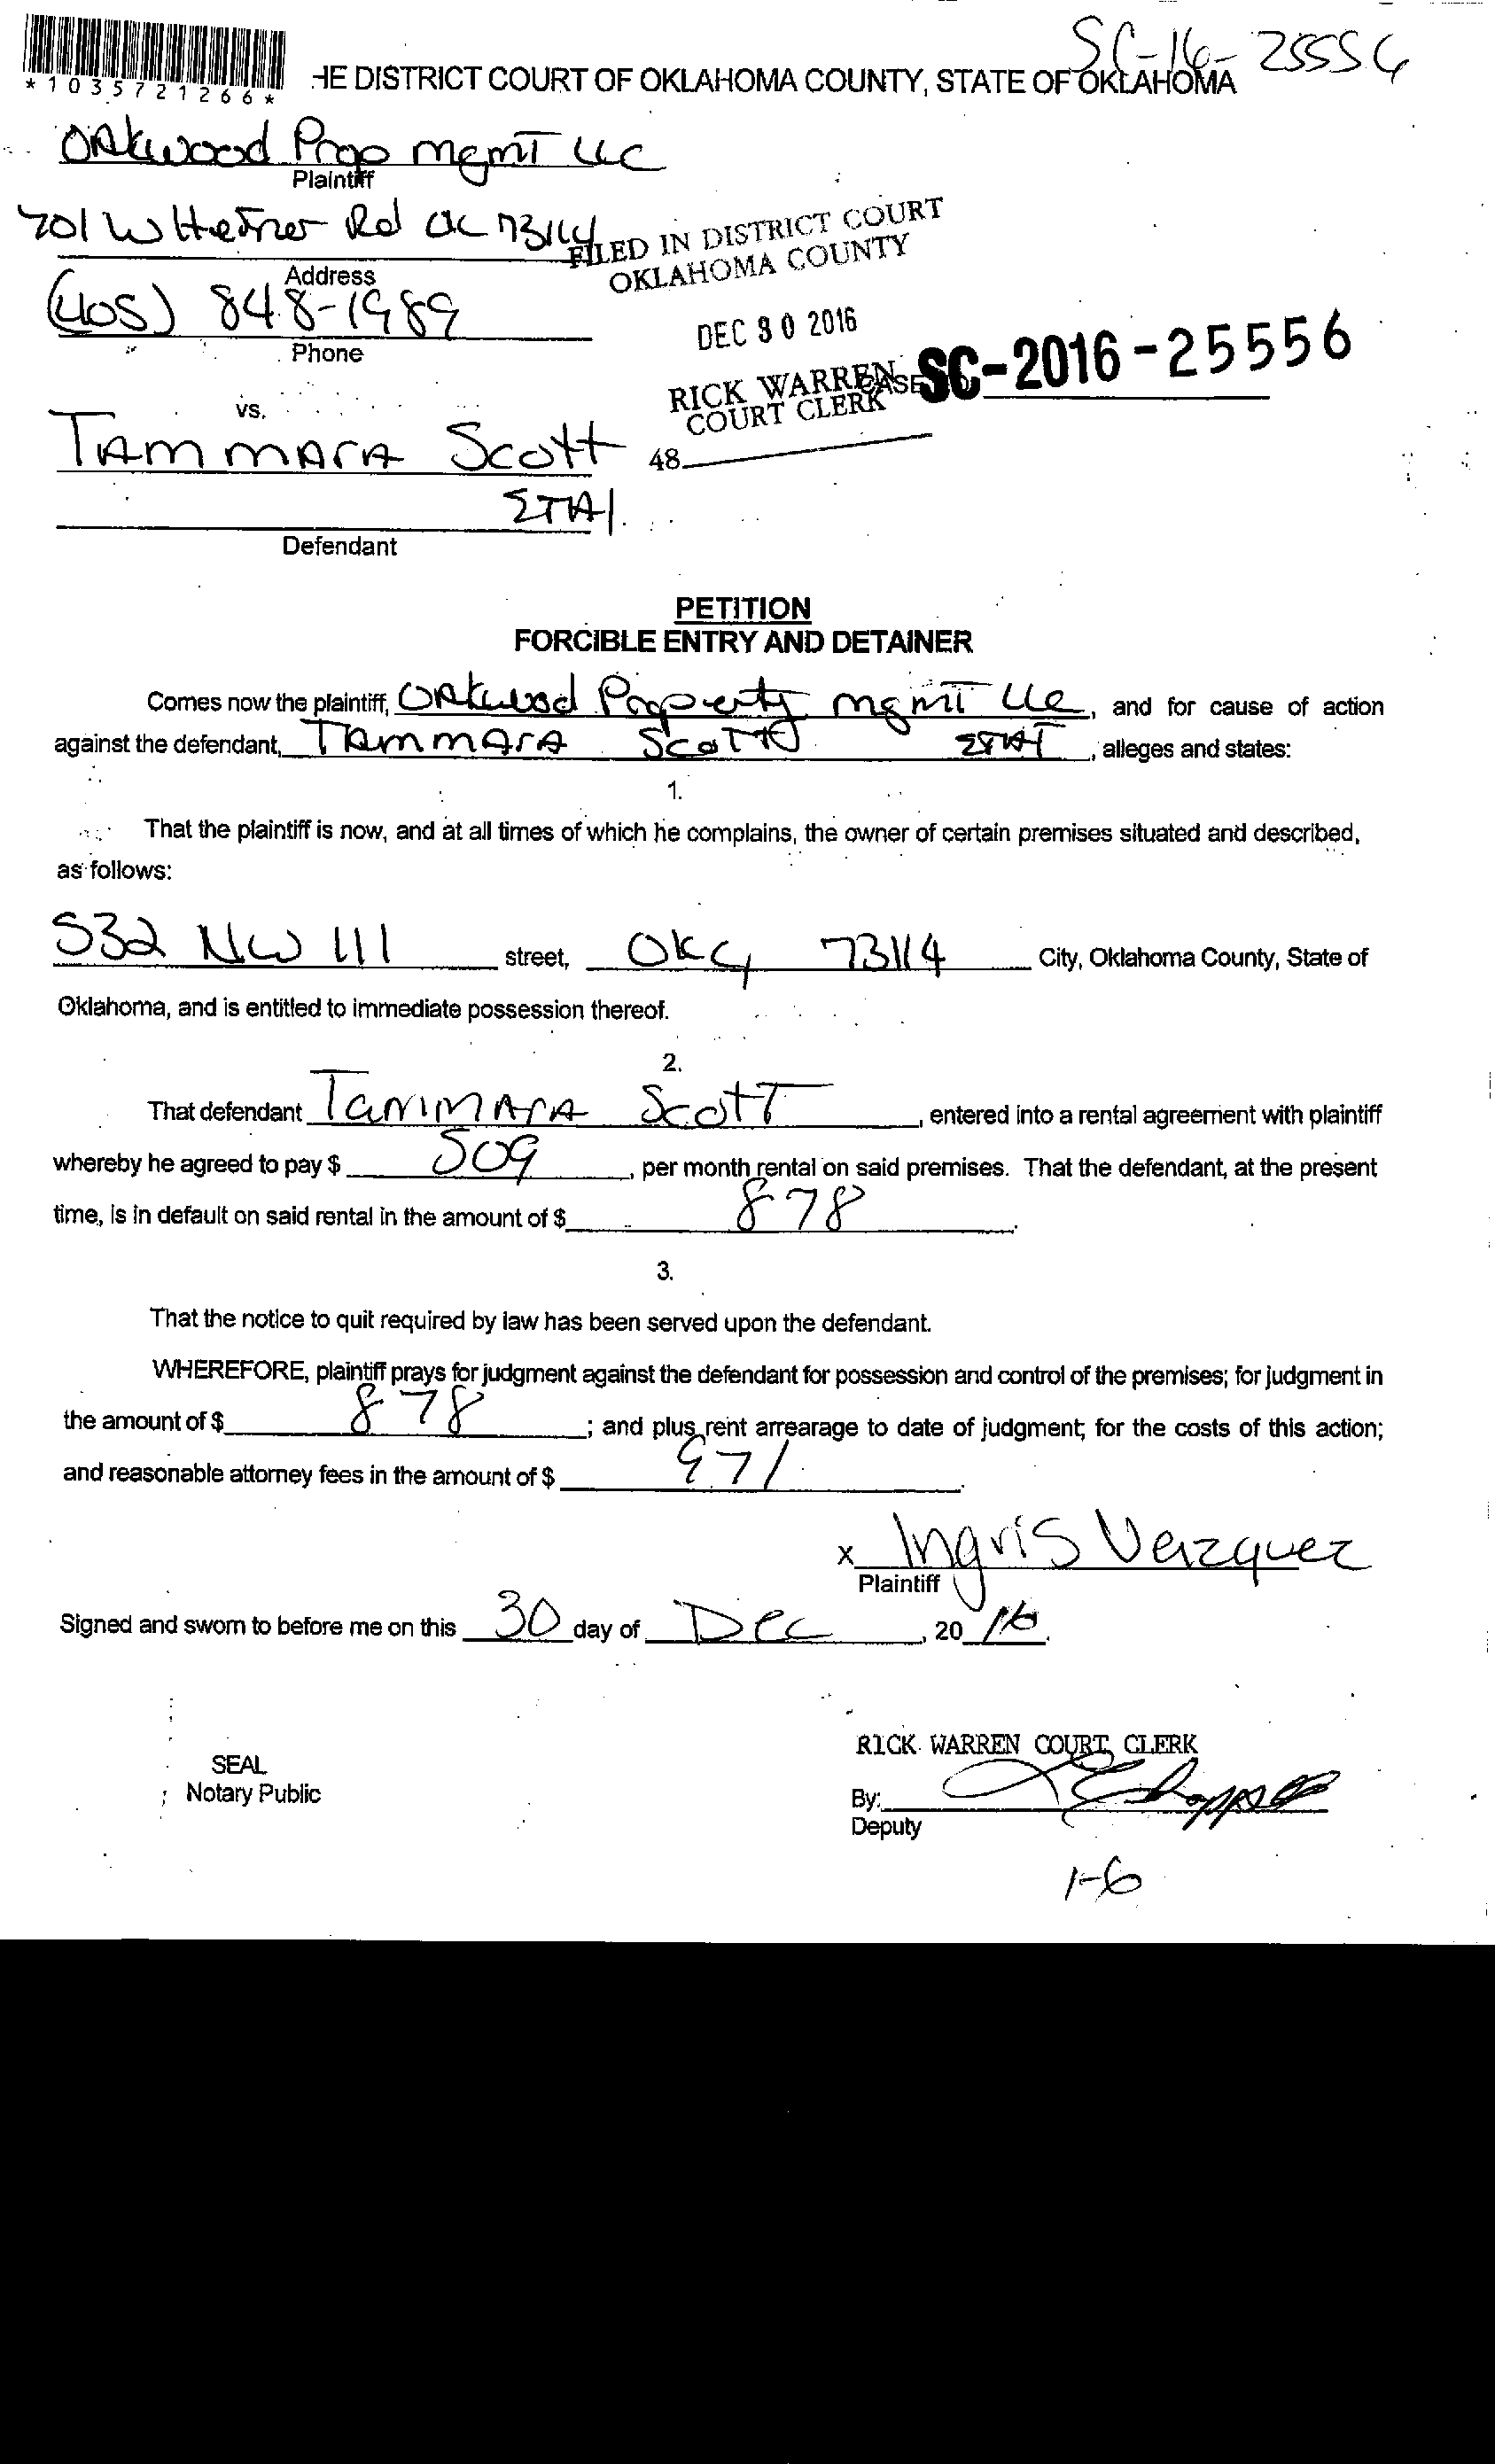 SC-16-25556
*1035721266*
HE DISTRICT COURT OF OKLAHOMA COUNTY, STATE OF OKLAHOMA
Oakwood Prop mgmT LLC
Plaintiff
701 W Hefner Rd OC 73114
Address
FILED IN DISTRICT COURT
OKLAHOMA COUNTY
(405) 848-1989
Phone
DEC 30 2016
RICK WARREN
COURT CLERK
CASE NO. SC-2016-25556
48
vs.
TAMMARA Scott
ETAl.
Defendant
PETITION
FORCIBLE ENTRY AND DETAINER
Comes now the plaintiff, Oakwood Property mgmT LLC, and for cause of action
against the defendant, TAMMARA Scott ETAl, alleges and states:
1.
That the plaintiff is now, and at all times of which he complains, the owner of certain premises situated and described,
as follows:
532 NW 111 street, OKC, 73114 City, Oklahoma County, State of
Oklahoma, and is entitled to immediate possession thereof.
2.
That defendant TAMMARA ScotT, entered into a rental agreement with plaintiff
whereby he agreed to pay $ 509, per month rental on said premises. That the defendant, at the present
time, is in default on said rental in the amount of $ 878.
3.
That the notice to quit required by law has been served upon the defendant.
WHEREFORE, plaintiff prays for judgment against the defendant for possession and control of the premises; for judgment in
the amount of $ 878; and plus rent arrearage to date of judgment; for the costs of this action;
and reasonable attorney fees in the amount of $ 971.
x Ingris Vazquez
Plaintiff
Signed and sworn to before me on this 30 day of Dec, 20 16.
RICK WARREN COURT CLERK
SEAL
Notary Public
By:
Deputy
1-6